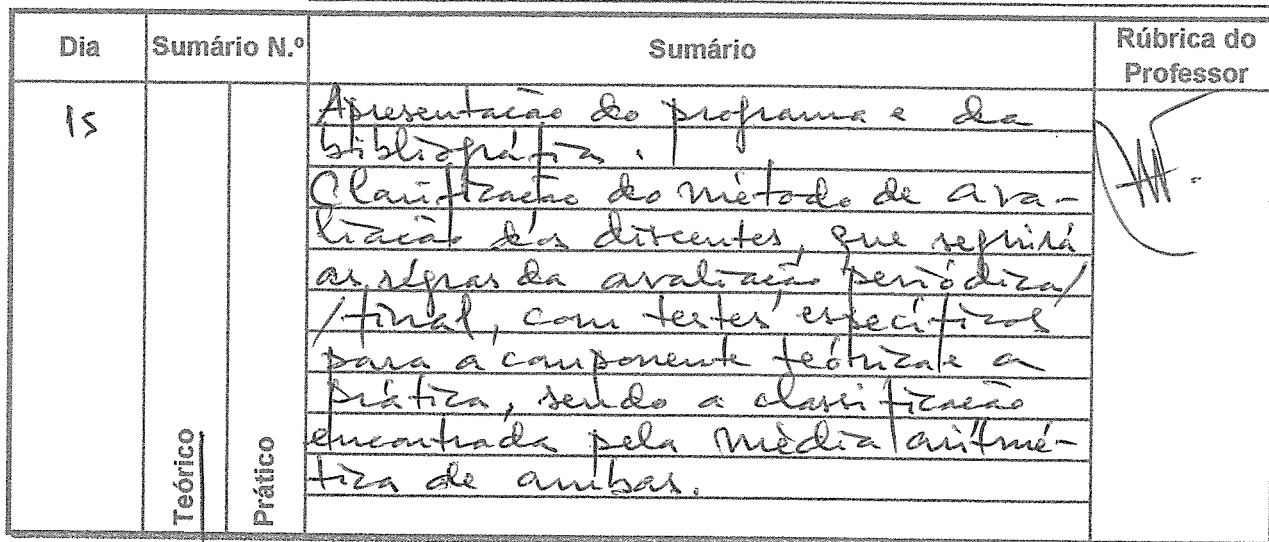 Dia Sumário N.º Sumário Rúbrica do Professor
15
Apresentação do programa e da
bibliográfia.
Clarificação do método de ava-
liação dos discentes, que seguirá
as régras da avaliação periódica/
/final, com testes específicos
para a componente teórica e a
prática, sendo a classificação
encontrada pela média aritmé-
tica de ambas.
Teórico
Prático